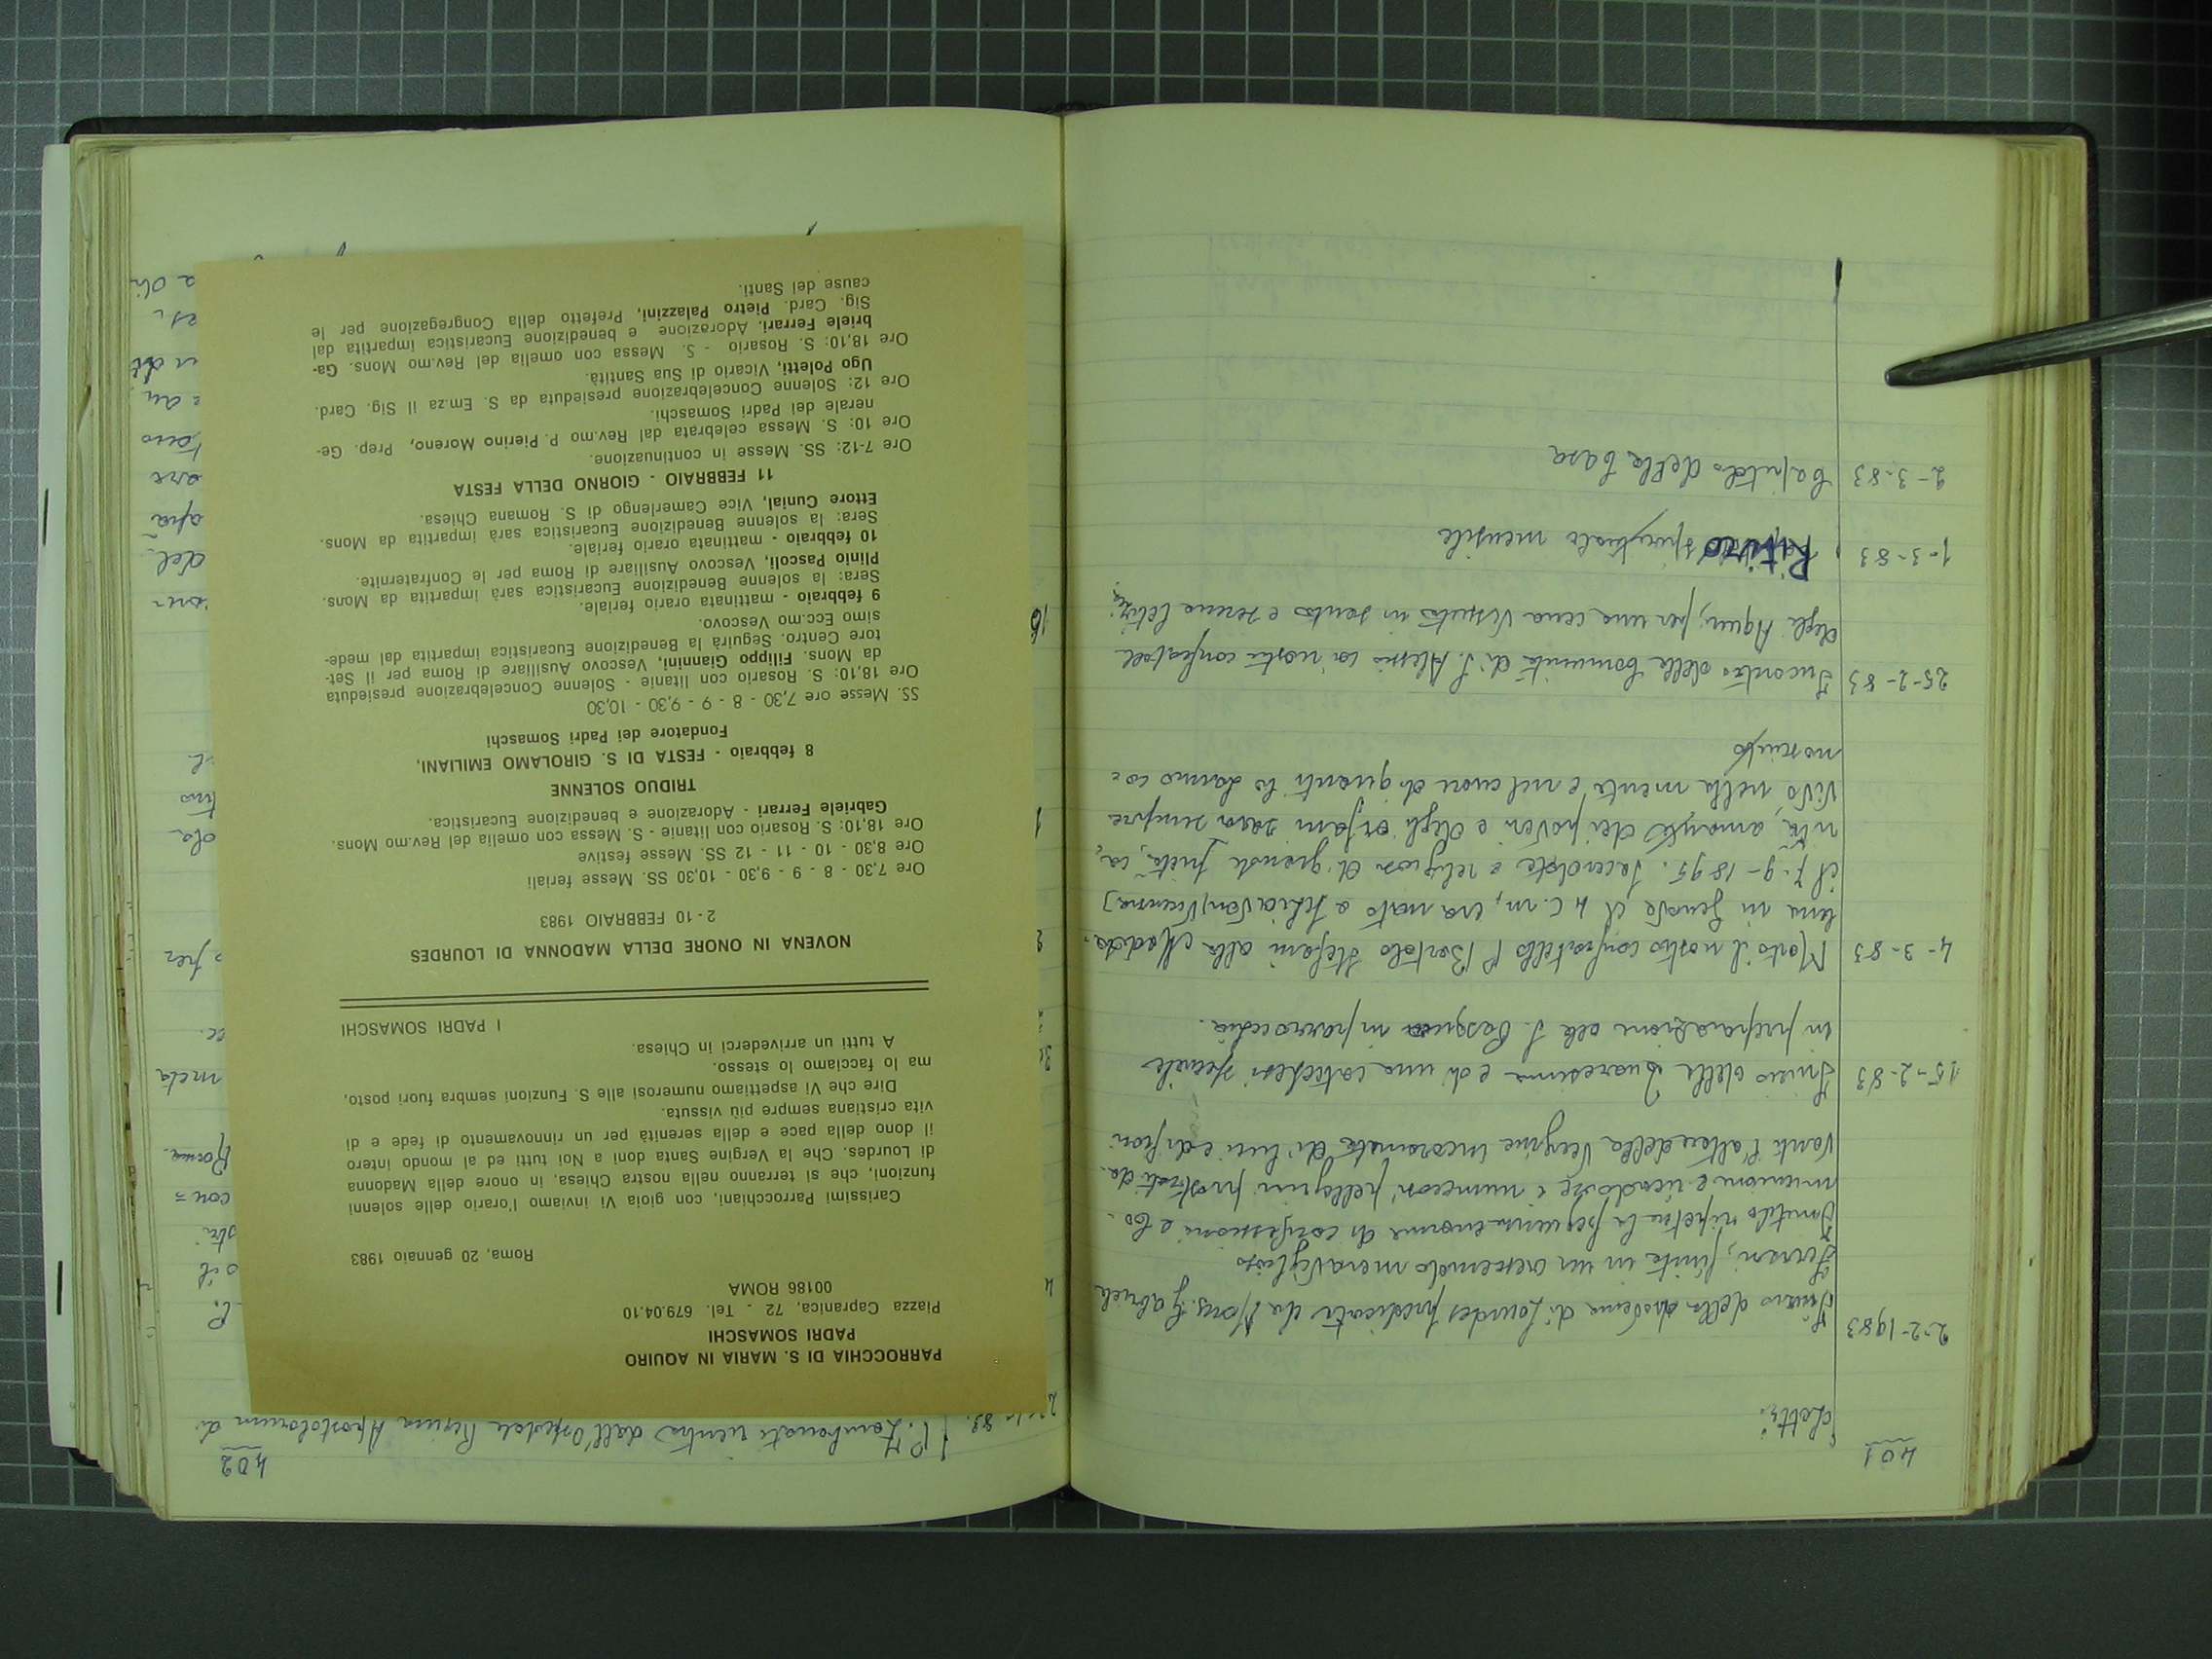 401
Letti.
2-2-1983 Inizio della Novena di Lourdes predicata da Mons. Gabriele
Ferrari, finita in un crescendo meraviglioso
Inutile ripetere la sequenza enorme di confessioni e co-
munioni e ricordare i numerosi pellegrini prostrati da-
vanti l'altare della Vergine incoronata di luci e di fiori
15-2-83 Inizio della Quaresima e di una catechesi speciale
in preparazione alla S. Pasqua in parrocchia.
4-3-83 Morto il nostro confratello P. Bortolo Stefani alla Madda-
lena in Genova il 4 c.m., era nato a Schiavon (Vicenza)
il 7-9-1895. Sacerdote e religioso di grande pietà,
amante dei poveri e degli orfani sarà sempre
vivo nella mente e nel cuore di quanti lo hanno co=
nosciuto
25-2-83 Incontro della Comunità di S. Alessio coi nostri confratelli
degli Aquiro, per una cena vissuta in santa e serena letizia,
1-3-83 Ritiro spirituale mensile
2-3-83 Capitolo della Casa
402
P. Zambonati rientra dall'Ospedale Regina Apostolorum di
PARROCCHIA DI S. MARIA IN AQUIRO
PADRI SOMASCHI
Piazza Capranica, 72 - Tel. 679.04.10
00186 ROMA
Roma, 20 gennaio 1983
Carissimi Parrocchiani, con gioia Vi inviamo l'orario delle solenni
funzioni, che si terranno nella nostra Chiesa, in onore della Madonna
di Lourdes. Che la Vergine Santa doni a Noi tutti ed al mondo intero
il dono della pace e della serenità per un rinnovamento di fede e di
vita cristiana sempre più vissuta.
Dire che Vi aspettiamo numerosi alle S. Funzioni sembra fuori posto,
ma lo facciamo lo stesso.
A tutti un arrivederci in Chiesa.
I PADRI SOMASCHI
NOVENA IN ONORE DELLA MADONNA DI LOURDES
2 - 10 FEBBRAIO 1983
Ore 7,30 - 8 - 9 - 9,30 - 10,30 SS. Messe feriali
Ore 8,30 - 10 - 11 - 12 SS. Messe festive
Ore 18,10: S. Rosario con litanie - S. Messa con omelia del Rev.mo Mons.
Gabriele Ferrari - Adorazione e benedizione Eucaristica.
TRIDUO SOLENNE
8 febbraio - FESTA DI S. GIROLAMO EMILIANI,
Fondatore dei Padri Somaschi
SS. Messe ore 7,30 - 8 - 9 - 9,30 - 10,30
Ore 18,10: S. Rosario con litanie - Solenne Concelebrazione presieduta
da Mons. Filippo Giannini, Vescovo Ausiliare di Roma per il Set-
tore Centro. Seguirà la Benedizione Eucaristica impartita dal mede-
simo Ecc.mo Vescovo.
9 febbraio - mattinata orario feriale.
Sera: la solenne Benedizione Eucaristica sarà impartita da Mons.
Plinio Pascoli, Vescovo Ausiliare di Roma per le Confraternite.
10 febbraio - mattinata orario feriale.
Sera: la solenne Benedizione Eucaristica sarà impartita da Mons.
Ettore Cunial, Vice Camerlengo di S. Romana Chiesa.
11 FEBBRAIO - GIORNO DELLA FESTA
Ore 7-12: SS. Messe in continuazione.
Ore 10: S. Messa celebrata dal Rev.mo P. Pierino Moreno, Prep. Ge-
nerale dei Padri Somaschi.
Ore 12: Solenne Concelebrazione presieduta da S. Em.za il Sig. Card.
Ugo Poletti, Vicario di Sua Santità.
Ore 18,10: S. Rosario - S. Messa con omelia del Rev.mo Mons. Ga-
briele Ferrari. Adorazione e benedizione Eucaristica impartita dal
Sig. Card. Pietro Palazzini, Prefetto della Congregazione per le
cause dei Santi.